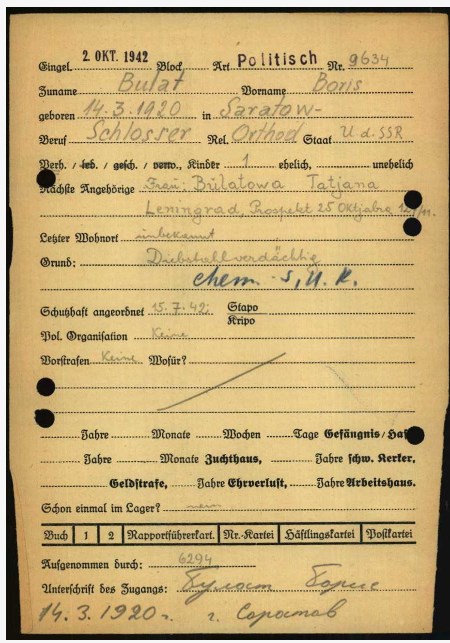 Eingel. 2. OKT. 1942 Block Art Politisch Nr. 9634
Zuname Bulat Vorname Boris
geboren 14.3.1920 in Saratow-
Beruf Schlosser Rel. Orthod Staat U.d.SSR
Verh. / led. / gesch. / verw., Kinder 1 ehelich, unehelich
Nächste Angehörige Frau: Bulatowa Tatjana
Leningrad, Prospekt 25 Oktjabra
Letzter Wohnort unbekannt
Grund: Diebstallverdächtig
chem. S.U.K.
Schutzhaft angeordnet 15.7.42. Stapo
Kripo
Pol. Organisation Keine
Vorstrafen Keine Wofür?
Jahre Monate Wochen Tage Gefängnis / Haft
Jahre Monate Zuchthaus, Jahre schw. Kerker,
Geldstrafe, Jahre Ehrverlust, Jahre Arbeitshaus.
Schon einmal im Lager? nein
Buch 1 2 Rapportführerkart. Nr.-Kartei Häftlingskartei Postkartei
Aufgenommen durch: 6294
Unterschrift des Zugangs: Булат Борис
14.3.1920 г. г. Саратов